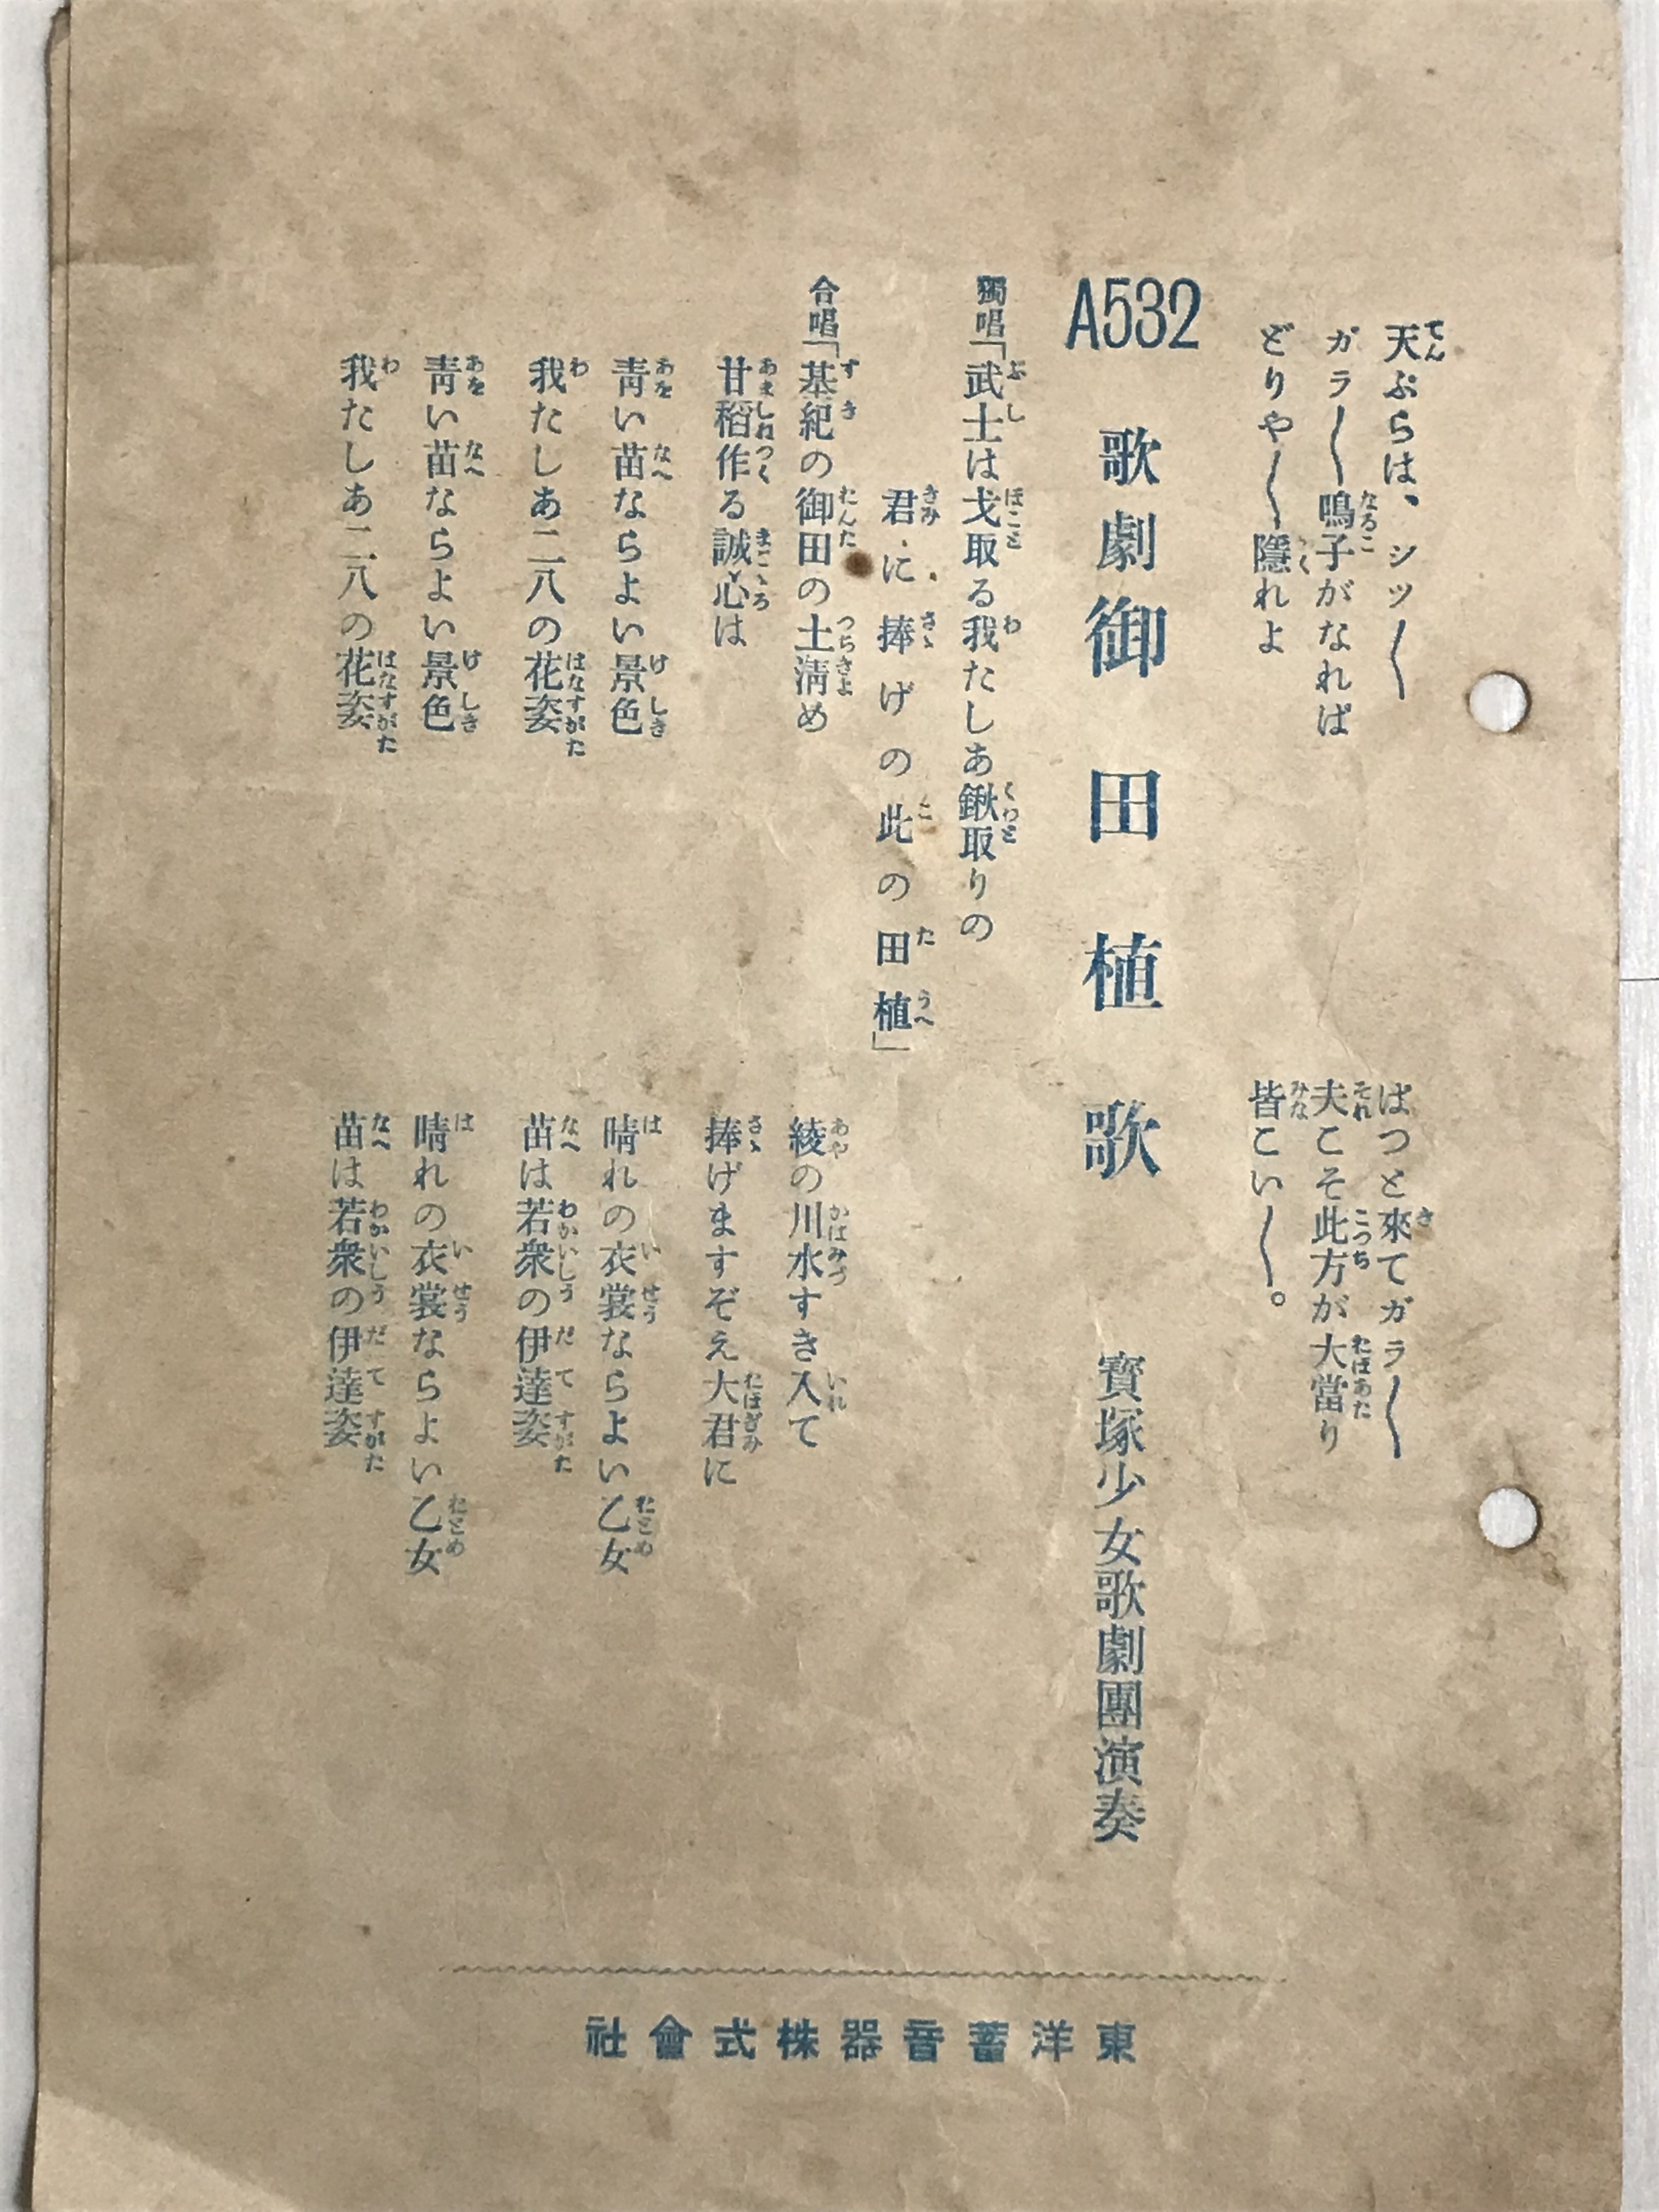 天ぷらは、シッ〳〵
ぱつと來てガラ〳〵
ガラ〳〵鳴子がなれば
夫こそ此方が大當り
どりや〳〵隱れよ
皆こい〳〵。
A532 歌劇御田植歌 寶塚少女歌劇團演奏
獨唱「武士は戈取る我たしあ鍬取りの
君に捧げの此の田植」
合唱「基紀の御田の土淸め
綾の川水すき入て
甘稻作る誠心は
捧げますぞえ大君に
靑い苗ならよい景色
晴れの衣裳ならよい乙女
我たしあ二八の花姿
苗は若衆の伊達姿
靑い苗ならよい景色
晴れの衣裳ならよい乙女
我たしあ二八の花姿
苗は若衆の伊達姿
東洋蓄音器株式會社